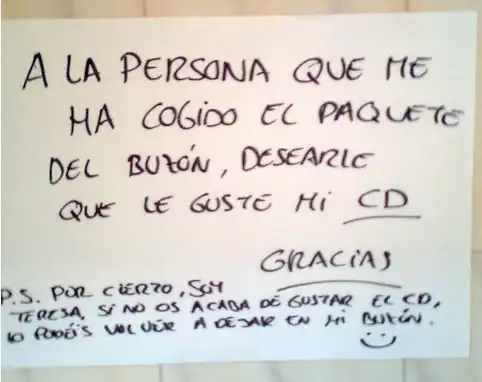 A LA PERSONA QUE ME
HA COGIDO EL PAQUETE
DEL BUZÓN, DESEARLE
QUE LE GUSTE MI CD
GRACIAS
P.S. POR CIERTO, SOY
TERESA, SI NO OS ACABA DE GUSTAR EL CD,
LO PODÉIS VOLVER A DEJAR EN MI BUZÓN.